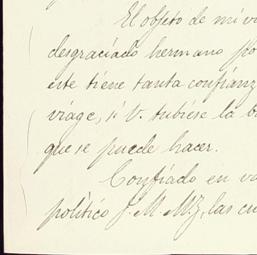 El objeto de mi v
desgraciado hermano po
este tiene tanta confianz
viage, si V. tubiese la b
que se puede hacer.
Confiado en v
político J. M. Mz, las cu